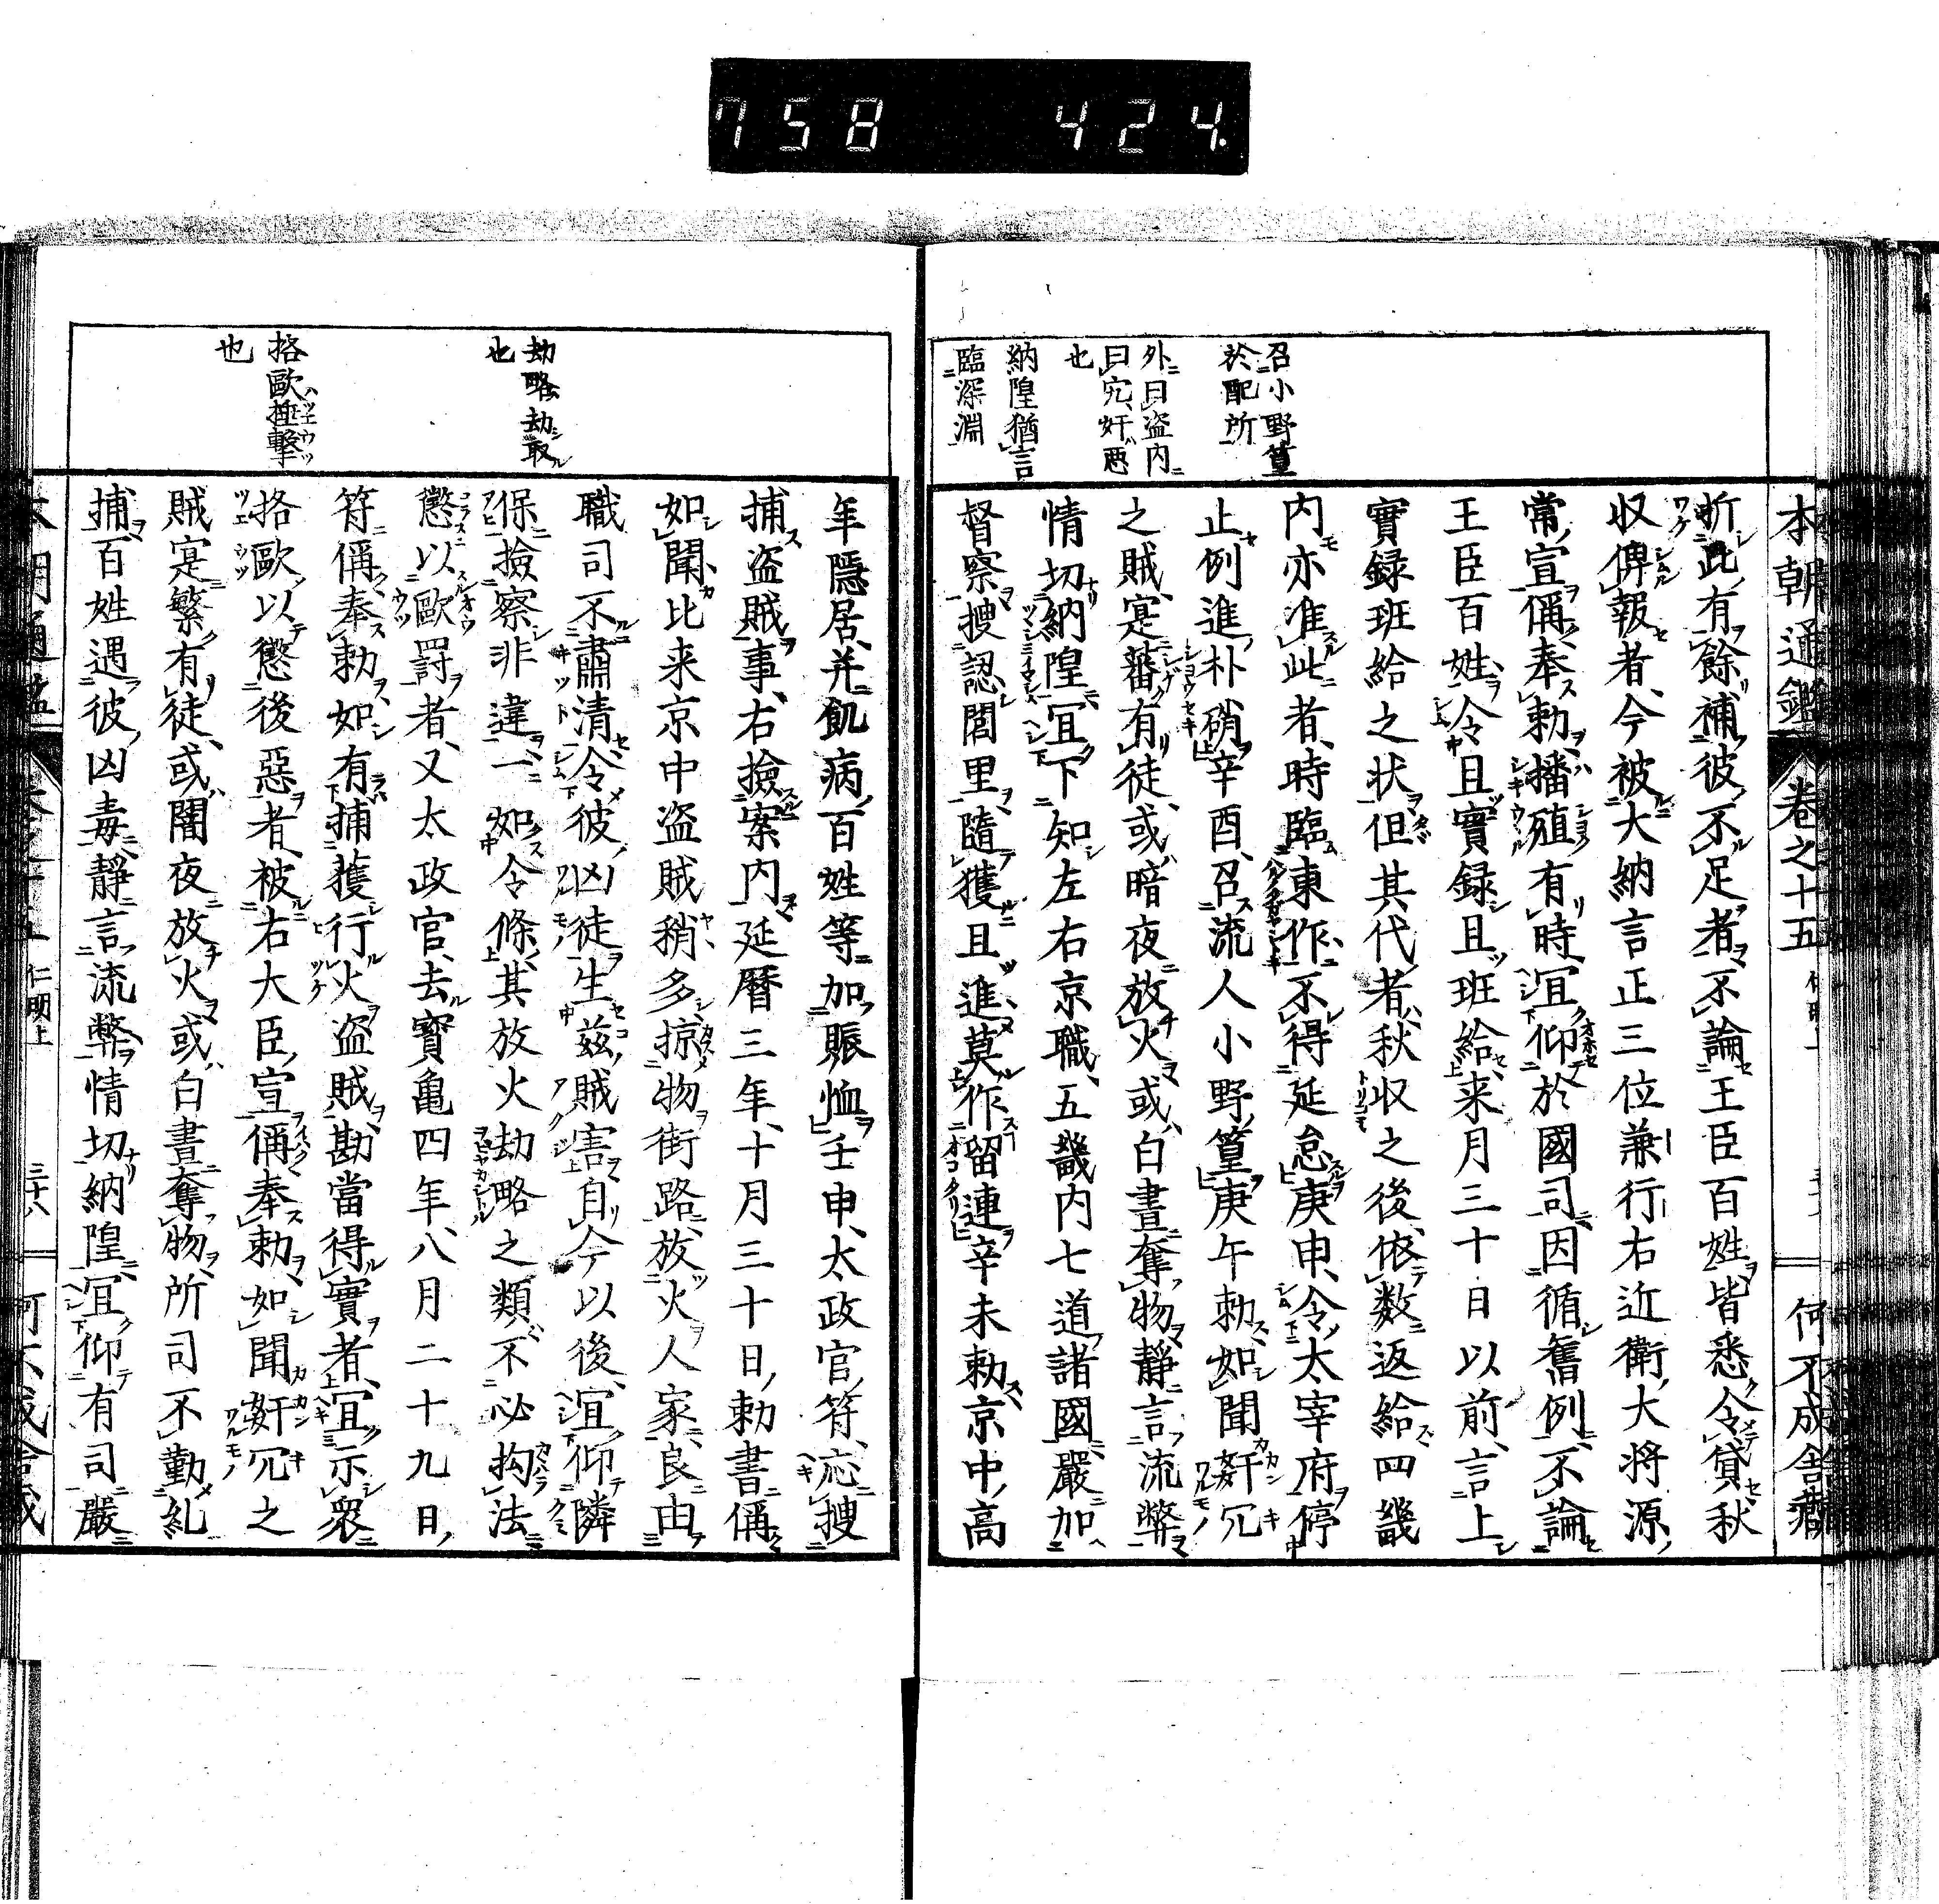 758 424.
本朝通鑑 卷之十五 何不成舎藏
召小野篁
於配所
外曰盗内
曰宄奸惡
也
納隍猶言
臨深淵
折此有餘補彼不足者不論王臣百姓皆悉令貸秋
収俾報者今被大納言正三位兼行右近衛大将源
常宣偁奉勅播殖有時冝仰於國司因循舊例不論
王臣百姓令且實録且班給来月三十日以前言上
實録班給之状但其代者秋収之後依数返給四畿
内亦准此者時臨東作不得延怠庚申令太宰府停
止例進朴硝辛酉召流人小野篁庚午勅如聞姧宄
之賊寔蕃有徒或暗夜放火或白晝奪物靜言流弊
情切納隍冝下知左右京職五畿内七道諸國嚴加
督察搜認閭里隨獲且進莫作留連辛未勅京中高
劫略劫取
也
挌歐捶撃
也
年隱居并飢病百姓等加賑恤壬申太政官符応搜
捕盗賊事右撿案内延暦三年十月三十日勅書偁
如聞比来京中盗賊稍多掠物街路放火人家良由
職司不肅清令彼凶徒生茲賊害自今以後冝仰隣
保撿察非違一如令條其放火劫略之類不必拘法
懲以歐罸者又太政官去寶亀四年八月二十九日
符偁奉勅如有捕獲行火盗賊勘當得實者冝示衆
挌歐以懲後惡者被右大臣宣偁奉勅如聞姧宄之
賊寔繁有徒或闇夜放火或白晝奪物所司不勤糺
捕百姓遇彼凶毒靜言流弊情切納隍冝仰有司嚴
仁明上 三十八